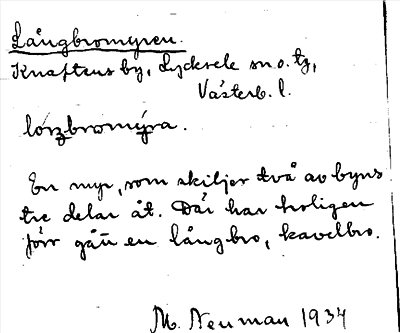 Långbromyren.
Knaftens by, Lycksele sn o. tg,
Västerb. l.
En myr, som skiljer två av byns
tre delar åt. Där har troligen
förr gått en långbro, kavelbro.
M. Neuman 1934